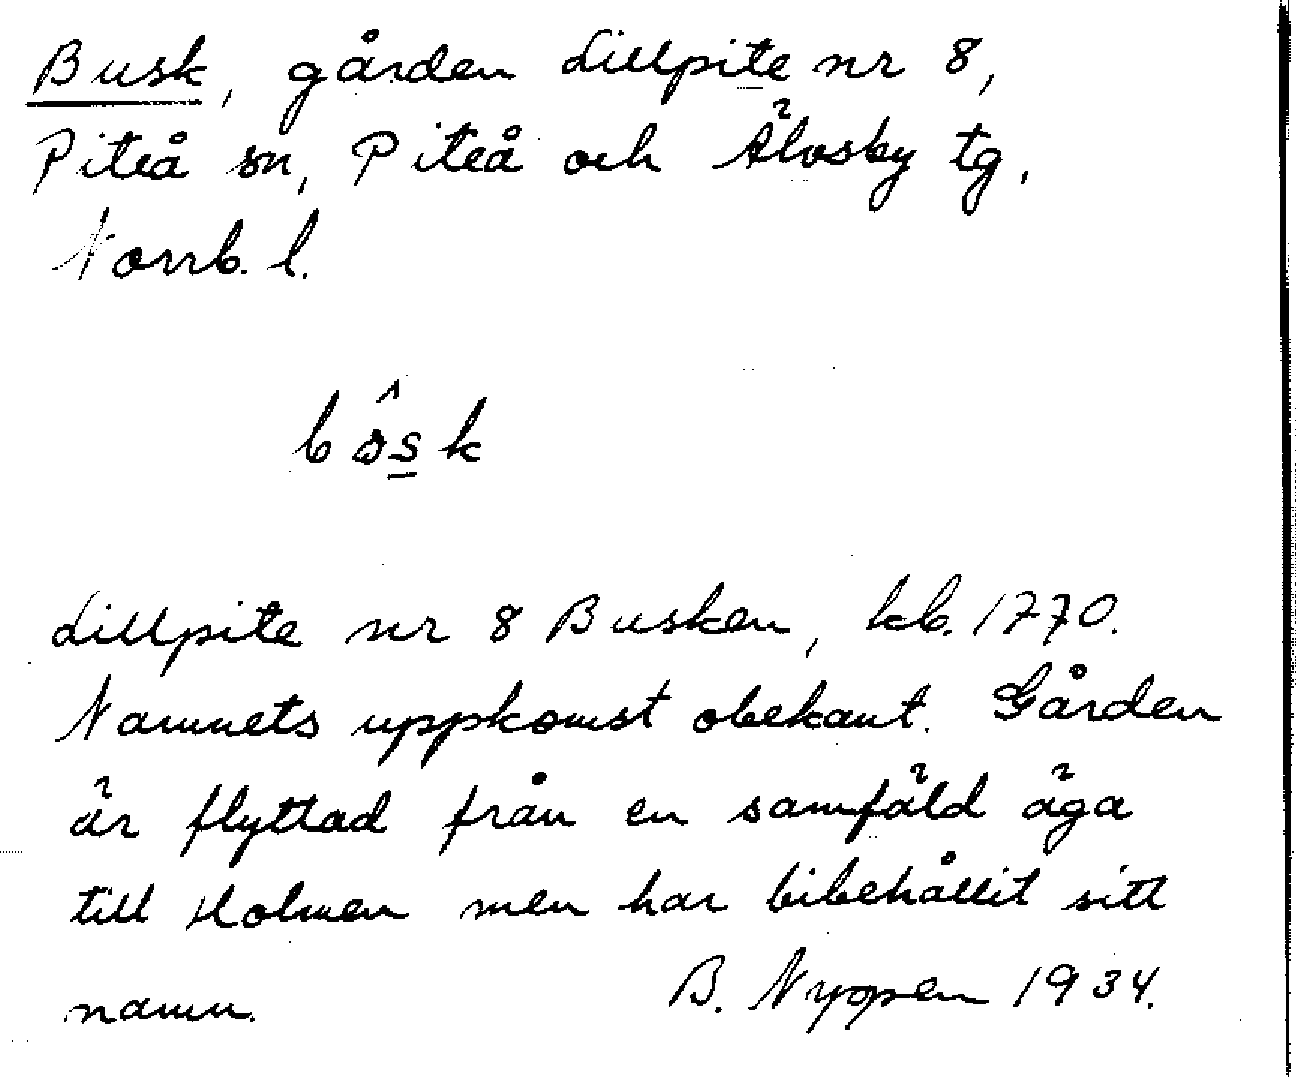 Busk, gården Lillpite nr 8,
Piteå sn, Piteå och Älvsby tg,
Norrb. l.
bô̂s̲k
Lillpite nr 8 Busken, kb. 1770.
Namnets uppkomst obekant. Gården
är flyttad från en samfäld äga
till Holmen men har bibehållit sitt
namn.
B. Nyppen 1934.